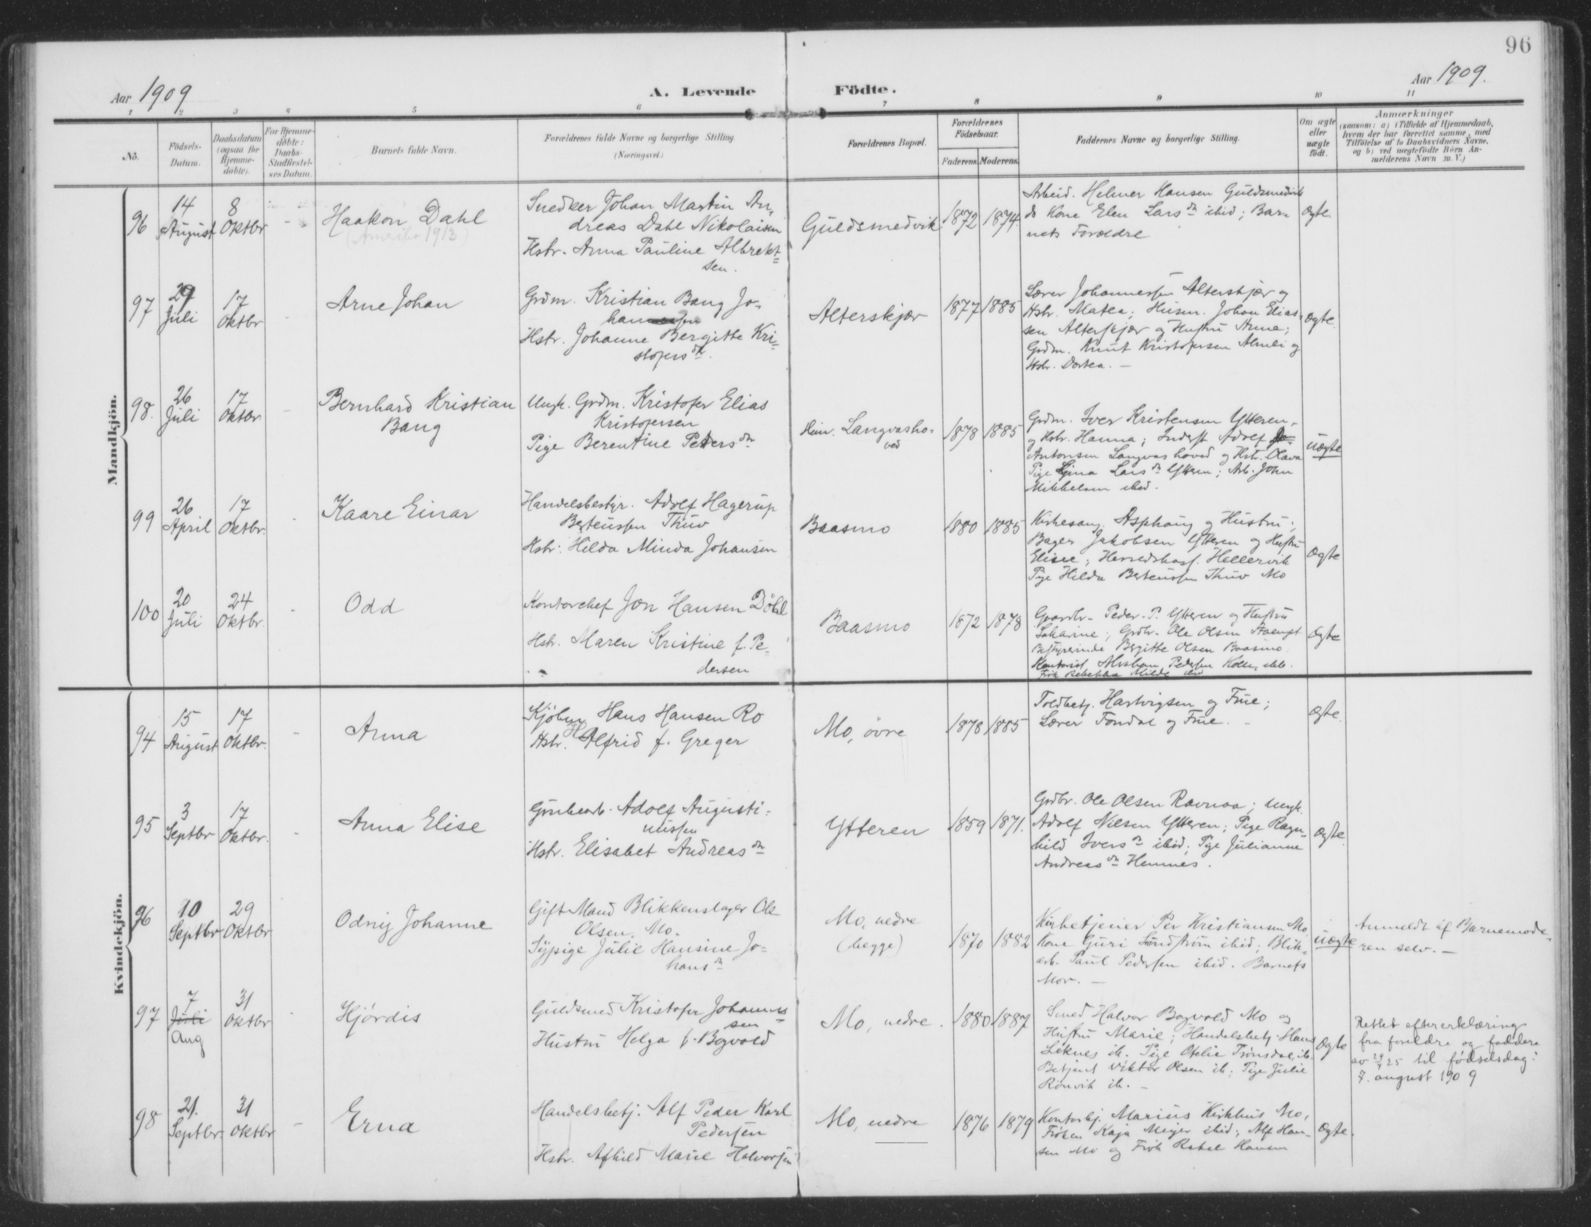 96
Aar 1909
A. Levende Fødte.
Aar 1909.
No.
Fødsels-Datum.
Daabsdatum (ogsaa for Hjemmedøbte).
For Hjemmedøbte: Daabs-Stadfæstelses Datum.
Barnets fulde Navn.
Forældrenes fulde Navne og borgerlige Stilling. (Næringsvei.)
Forældrenes Bopæl.
Forældrenes Fødselsaar.
Faderens. Moderens.
Faddernes Navne og borgerlige Stilling.
Om ægte eller uægte født.
Anmærkninger
Mandkjön.
96 14 August 8 Oktbr Haakon Dahl
(Amerika 1913)
Snedker Johan Martin An-
dreas Dahl Nikolaisen
Hstr. Anna Pauline Albrekt-
sen.
Guldsmedvik 1872 1874
Arbeid. Helmer Hansen Guldsmedvik
Kone Elen Larsdn ibid; Bar-
nets Forældre
Ægte
97 29 Juli 17 Oktbr Arne Johan
Grdm. Kristian Bang Jo-
hannesen
Hstr. Johanne Bergitte Kri-
stofersdn.
Alterskjær 1877 1885
Lærer Johannessen Alterskjær og
Hstr. Matea; Husm. Johan Elias-
sen Alterskjær og Hustru Anne;
Grdm. Knut Kristofersen Almli og
Hstr. Dortea. —
Ægte
98. 26 Juli 17 Oktbr Bernhard Kristian
Bang
Ungk. Grdm. Kristofer Elias
Kristofersen
Pige Berentine Pedersdn
Hein. Langvasho-
ved
1878 1885
Grdm. Iver Kristensen Ytteren,
og Hstr. Hanna; Inderst Adolf
Antonsen Langvashoved og Hst. Olava
Pige Gina Larsdn Ytteren; Arb. John
Mikkelsen ibid.
uægte
99 26 April 17 Oktbr. Kaare Einar
Handelsbestyr. Adolf Hagerup
Berteussen Thuv
Hstr. Hilda Minda Johansen
Baasmo 1880 1885
Kirkesang. Asphaug og Hustru;
Bager Jakobsen Ytteren og Hustru
Elise; Herredskass. Hellervik
Pige Hilda Berteussen Thuv Mo
Ægte
100 20 Juli 24 Oktbr. Odd
Kontorchef Jon Hansen Döhl
Hst. Maren Kristine f. Pe-
dersen
Baasmo 1872 1878
Gaardbr. Peder P. Ytteren og Hustru
Grdbr. Ole Olsen
Bestyrerinde Birgitte Olsen Baasmo
Ægte
Kvindekjön.
94 15 August 17 Oktbr. Anna
Kjöbm. Hans Hansen Ro
Hstr. Alfrid f. Greger
Mo, övre 1878 1885
Toldbetj. Hartvigsen og Frue;
Lærer Fondal og Frue. —
Ægte.
95 3 Septbr 17 Oktbr. Anna Elise
Grubearb. Adolf Augusti-
nussen
Hstr. Elisabet Andreasdn
Ytteren 1859 1871.
Grdbr. Ole Olsen Ravnaa; Ungk.
Adolf Nilsen Ytteren; Pige Ragn-
hild Iversdn ibid; Pige Julianne
Andreasdn Hemnes.
Ægte
96 10 Septbr 29 Oktbr Odny Johanne
Gift Mand Blikkenslager Ole
Olsen. Mo.
Sypige Julie Hansine Jo-
hansdn
Mo, nedre
(begge)
1870 1882
Kirketjener Per Kristiansen Mo
Kone Guri Sundström ibid; Blik-
arb. Paul Pedersen ibid. Barnets
Mor. —
uægte
Anmeldt af Barnemode-
ren selv. —
97 7 Juli Aug 31 Oktbr Hjördis
Guldsmed Kristofer Johannes-
sen
Hustru Helga f. Bogvold
Mo, nedre. 1880 1887
Smed Halvor Bogvold Mo og
Hustru Marie; Handelsbetj. Hans
Liknes ib. Pige Otelie Trönsdal, ib.
Betjent Viktor Olsen ib; Pige Julie
Rönvik ib. —
Ægte
Rettet efter erklæring
fra foreldre og faddere
av 29/7 25 til födselsdag:
7. august 1909
98 21. Septbr. 31 Oktbr Erna
Handelsbetj. Alf Peder Karl
Pedersen
Hstr. Afhild Marie Halvorsen
Mo, nedre 1876 1879
Kontorbtj. Marius Kirkhus Mo,
Fröken Kaja Meyer ibid; Alf Han-
sen Mo og Frök Rakel Hansen
Ægte.